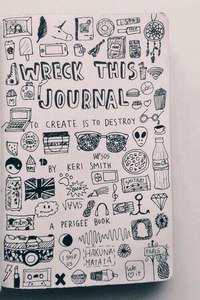 WRECK THIS
JOURNAL
TO CREATE IS TO DESTROY
1D
BY KERI SMITH
A PERIGEE BOOK
I SHIP
HAKUNA
MATATA
PARIS